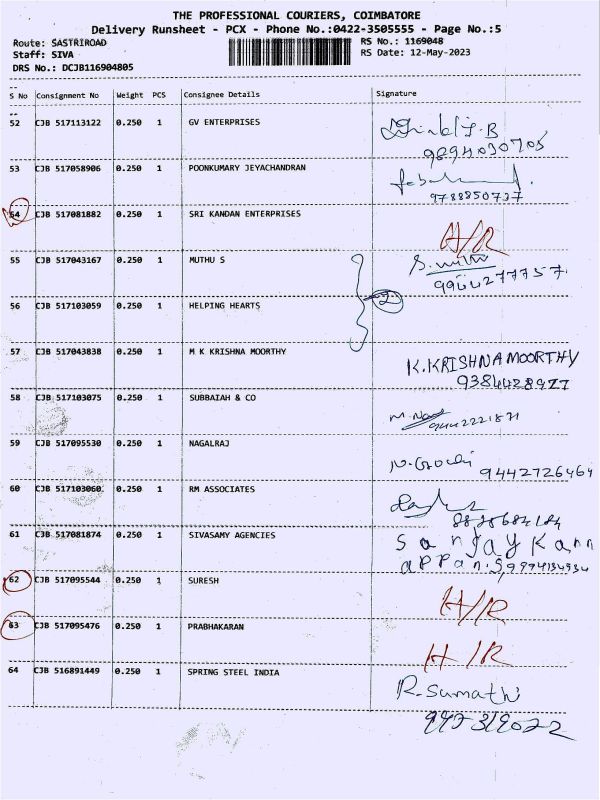 THE PROFESSIONAL COURIERS, COIMBATORE
Delivery Runsheet - PCX - Phone No.:0422-3505555 - Page No.:5
Route: SASTRIROAD RS No.: 1169048
Staff: SIVA RS Date: 12-May-2023
DRS No.: DCJB116904805
S No Consignment No Weight PCS Consignee Details Signature
52 CJB 517113122 0.250 1 GV ENTERPRISES
9894030705
53 CJB 517058906 0.250 1 POONKUMARY JEYACHANDRAN
9788850737
54 CJB 517081882 0.250 1 SRI KANDAN ENTERPRISES
H/R
55 CJB 517043167 0.250 1 MUTHU S S. muthu
9944277757.
56 CJB 517103059 0.250 1 HELPING HEARTS 2
57 CJB 517043838 0.250 1 M K KRISHNA MOORTHY K.KRISHNAMOORTHY
9384428977
58 CJB 517103075 0.250 1 SUBBAIAH & CO
9442221871
59 CJB 517095530 0.250 1 NAGALRAJ
9442726464
60 CJB 517103060 0.250 1 RM ASSOCIATES
61 CJB 517081874 0.250 1 SIVASAMY AGENCIES Sanjay Kann
appan.S
62 CJB 517095544 0.250 1 SURESH
H/R
63 CJB 517095476 0.250 1 PRABHAKARAN
H/R
64 CJB 516891449 0.250 1 SPRING STEEL INDIA R. Sumathi